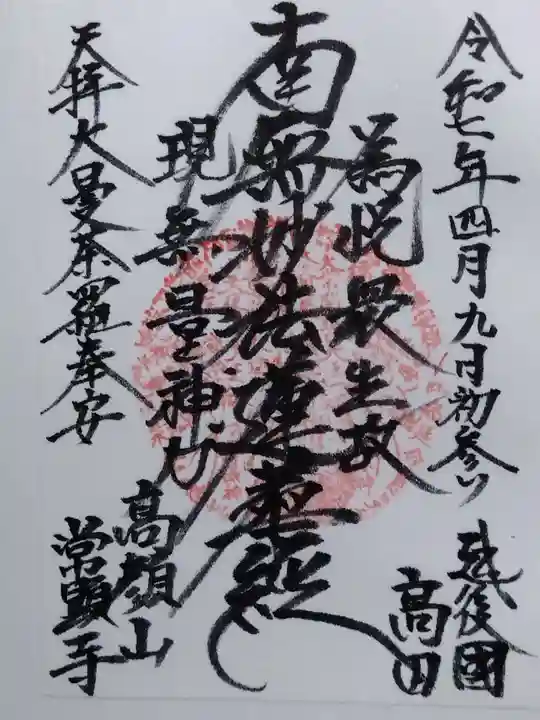 令和七年四月九日初参り
越後國
高田
為悦衆生故
南無妙法蓮華経
現無量神力
天拝大曼荼羅奉安
高顔山
常顕寺